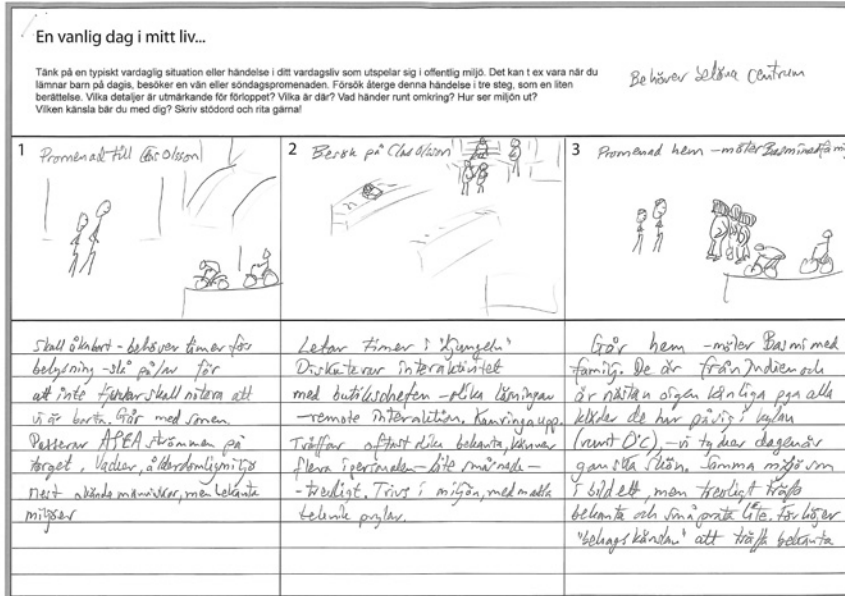 En vanlig dag i mitt liv...
Tänk på en typiskt vardaglig situation eller händelse i ditt vardagsliv som utspelar sig i offentlig miljö. Det kan t ex vara när du
lämnar barn på dagis, besöker en vän eller söndagspromenaden. Försök återge denna händelse i tre steg, som en liten
berättelse. Vilka detaljer är utmärkande för förloppet? Vilka är där? Vad händer runt omkring? Hur ser miljön ut?
Vilken känsla bär du med dig? Skriv stödord och rita gärna!
Behöver centrum
1 Promenad till Clas Olsson
2 Besök på Clas Olsson
3 Promenad hem - möter Basmi med
Skall åka bort - behöver timer för
belysning - slå på/av för
att inte tjuvar skall notera att
vi är borta. Går med sonen.
Passerar strömmen på
torget. Vacker, ålderdomlig miljö
mest okända människor, men bekanta
miljöer
Letar timer i "djungeln"
Diskuterar interaktivitet
med butikschefen - olika lösningar
- remote interaktion. Kan ringa upp.
Träffar oftast olika bekanta, känner
flera i personalen - lite småprat -
- trevligt. Trivs i miljön, med massa
teknik prylar.
Går hem - möter Basmi med
familj. De är från Indien och
är nästan oigenkänliga pga alla
kläder de har på sig i kylan
(runt 0°C), - vi tycker dagen är
ganska skön. Samma miljö som
i bild ett, men trevligt träffa
bekanta och småprata lite. Förhöjer
"behagskänslan" att träffa bekanta